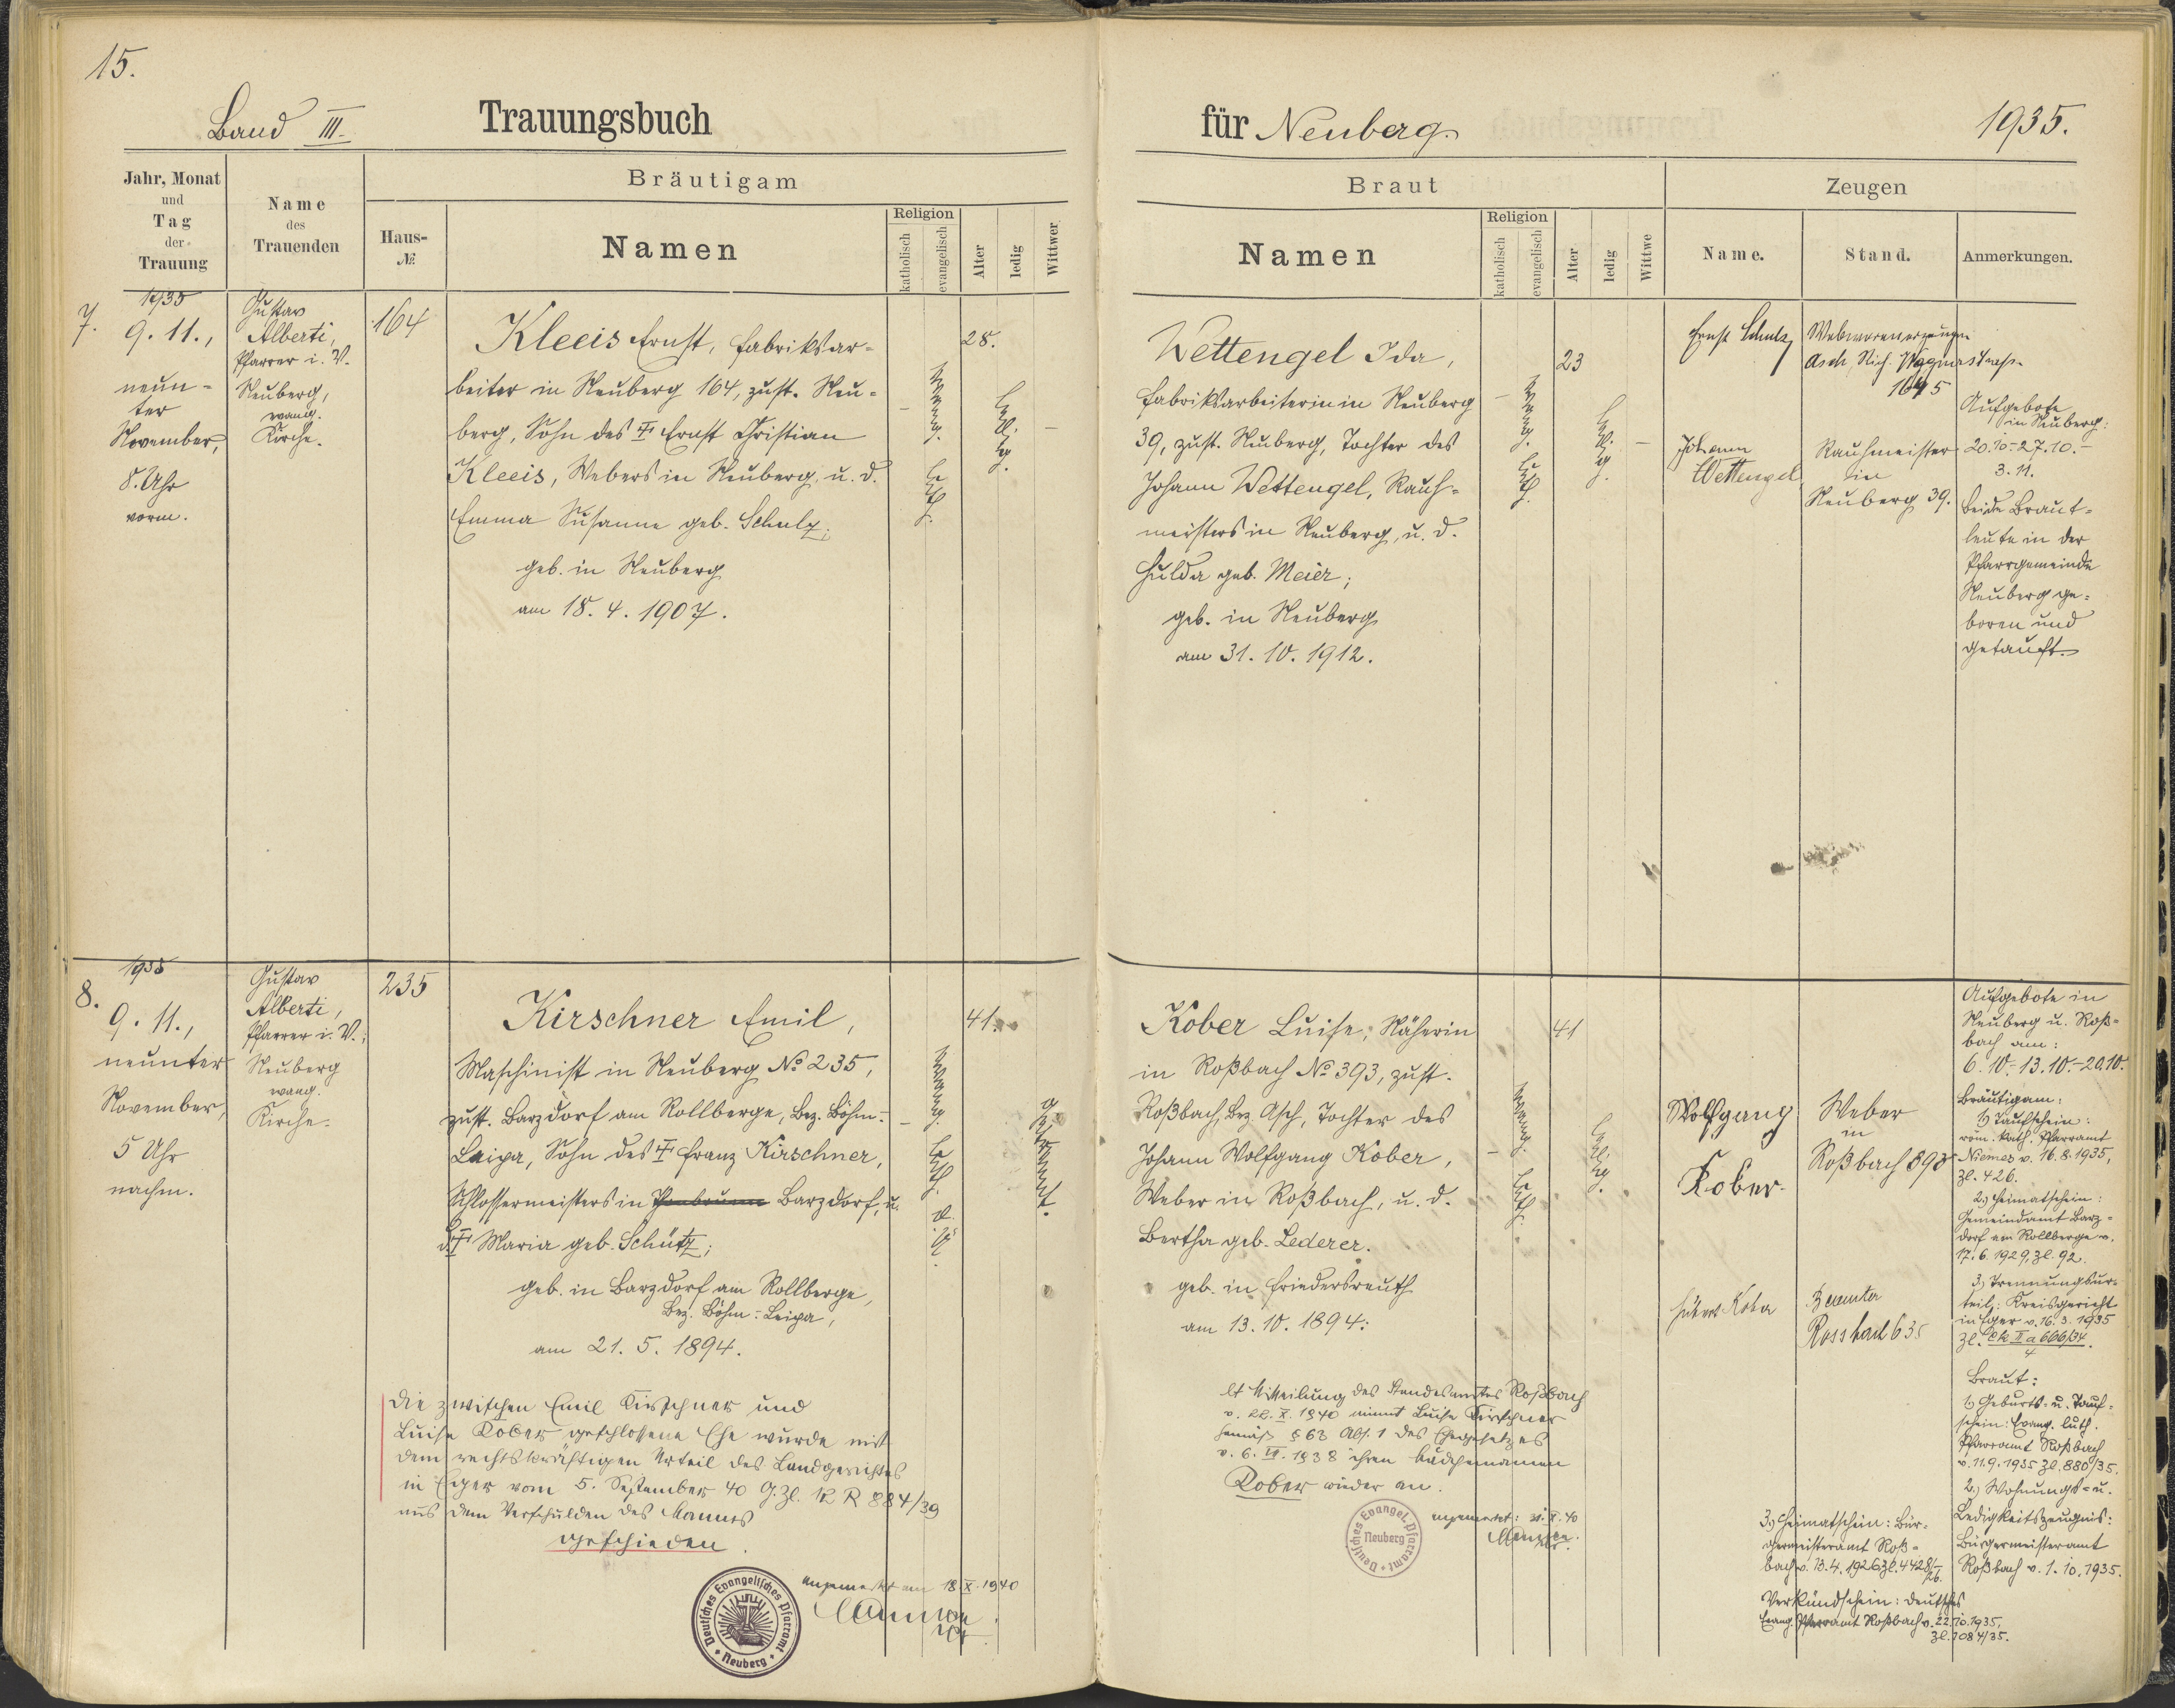 15.
Band III.
Trauungsbuch
für Neuberg.
1935.
Jahr, Monat
und
Tag
der
Trauung
Name
des
Trauenden
Bräutigam
Haus-
№
Namen
Religion
katholisch
evangelisch
Alter
ledig
Wittwer
Braut
Namen
Religion
katholisch
evangelisch
Alter
ledig
Wittwe
Zeugen
Name.
Stand.
Anmerkungen.
7.
1935
9. 11.,
neun-
ter
November,
8. Uhr
vorm.
Gustav
Alberti,
Pfarrer i. V.
Neuberg,
evang.
Kirche.
164
Kleeis Ernst, Fabriksar-
beiter in Neuberg 164, zust. Neu-
berg, Sohn des Ernst Christian
Kleeis, Webers in Neuberg, u. d.
Emma Susanne geb. Schulz;
geb. in Neuberg
am 18. 4. 1907.
evang.
luth.
28.
ledig.
–
Wettengel Ida,
Fabriksarbeiterin in Neuberg
39, zust. Neuberg, Tochter des
Johann Wettengel, Rauh-
meisters in Neuberg, u. d.
Hulda geb. Meier;
geb. in Neuberg
am 31. 10. 1912.
evang.
luth.
23
ledig.
–
Ernst Schulz
Webwarenerzeuger
Asch, Rich. Wagnerstrasse
1645
Johann
Wettengel
Rauhmeister
in
Neuberg 39.
Aufgebote
in Neuberg:
20.10.-27.10.-
3.11.
beide Braut-
leute in der
Pfarrgemeinde
Neuberg ge-
boren und
getauft.
8.
1935
9. 11.,
neunter
November,
5 Uhr
nachm.
Gustav
Alberti,
Pfarrer i. V.;
Neuberg
evang.
Kirche.
235
Kirschner Emil,
Maschinist in Neuberg No 235,
zust. Barzdorf am Rollberge, Bez. Böhm.-
Leipa, Sohn des Franz Kirschner,
Schlossermeisters in Barzdorf, u.
d. Maria geb. Schütz;
geb. in Barzdorf am Rollberge,
Bez. Böhm.-Leipa,
am 21. 5. 1894.
evang.
luth.
41.
getrennt.
Kober Luise, Näherin
in Roßbach No 393, zust.
Roßbach, Bez Asch, Tochter des
Johann Wolfgang Kober,
Weber in Roßbach, u. d.
Bertha geb. Lederer.
geb. in Friedersreuth
am 13. 10. 1894.
evang.
luth.
41
ledig.
Wolfgang
Kober
Weber
in
Roßbach 393
Kober
Beamter
Rossbach 635
Aufgebote in
Neuberg u. Roß-
bach am:
6.10.-13.10.-20.10.
Bräutigam:
1) Taufschein:
röm. kath. Pfarramt
Niemes v. 16.8.1935,
Zl. 426.
2.) Heimatschein:
Gemeindeamt Barz-
dorf am Rollberge v.
17.6.1929, Zl. 92.
3.) Trennungsur-
teil: Kreisgericht
in Eger v. 16.3.1935
Zl. Ck II a 606/34.
4
Braut:
1.) Geburts- u. Tauf-
schein: Evang. luth.
Pfarramt Roßbach
v. 11.9.1935 Zl. 880/35.
2.) Wohnungs- u.
Ledigkeitszeugnis:
Bürgermeisteramt
Roßbach v. 1.10.1935.
3.) Heimatschein: Bür-
germeisteramt Roß-
bach v. 13.4.1926 Zl. 4428/26.
Verkündschein: Deutsches
Evang. Pfarramt Roßbach v. 22.10.1935,
Zl. 1084/35.
Die zwischen Emil Kirschner und
Luise Kober geschlossene Ehe wurde mit
dem rechtskräftigen Urteil des Landgerichtes
in Eger vom 5. September 40 G.Zl. 12 R 884/39
aus dem Verschulden des Mannes
geschieden.
angemerkt am 18.X.1940
Deutsches Evangelisches Pfarramt
Neuberg
lt Mitteilung des Standesamtes Roßbach
v. 22. X. 1940 nimmt Luise Kirschner
gemäß § 63 Abs. 1 des Ehegesetzes
v. 6. VII. 1938 ihren Mädchennamen
Kober wieder an.
angemerkt: 31.X.40
Deutsches Evangel. Pfarramt
Neuberg